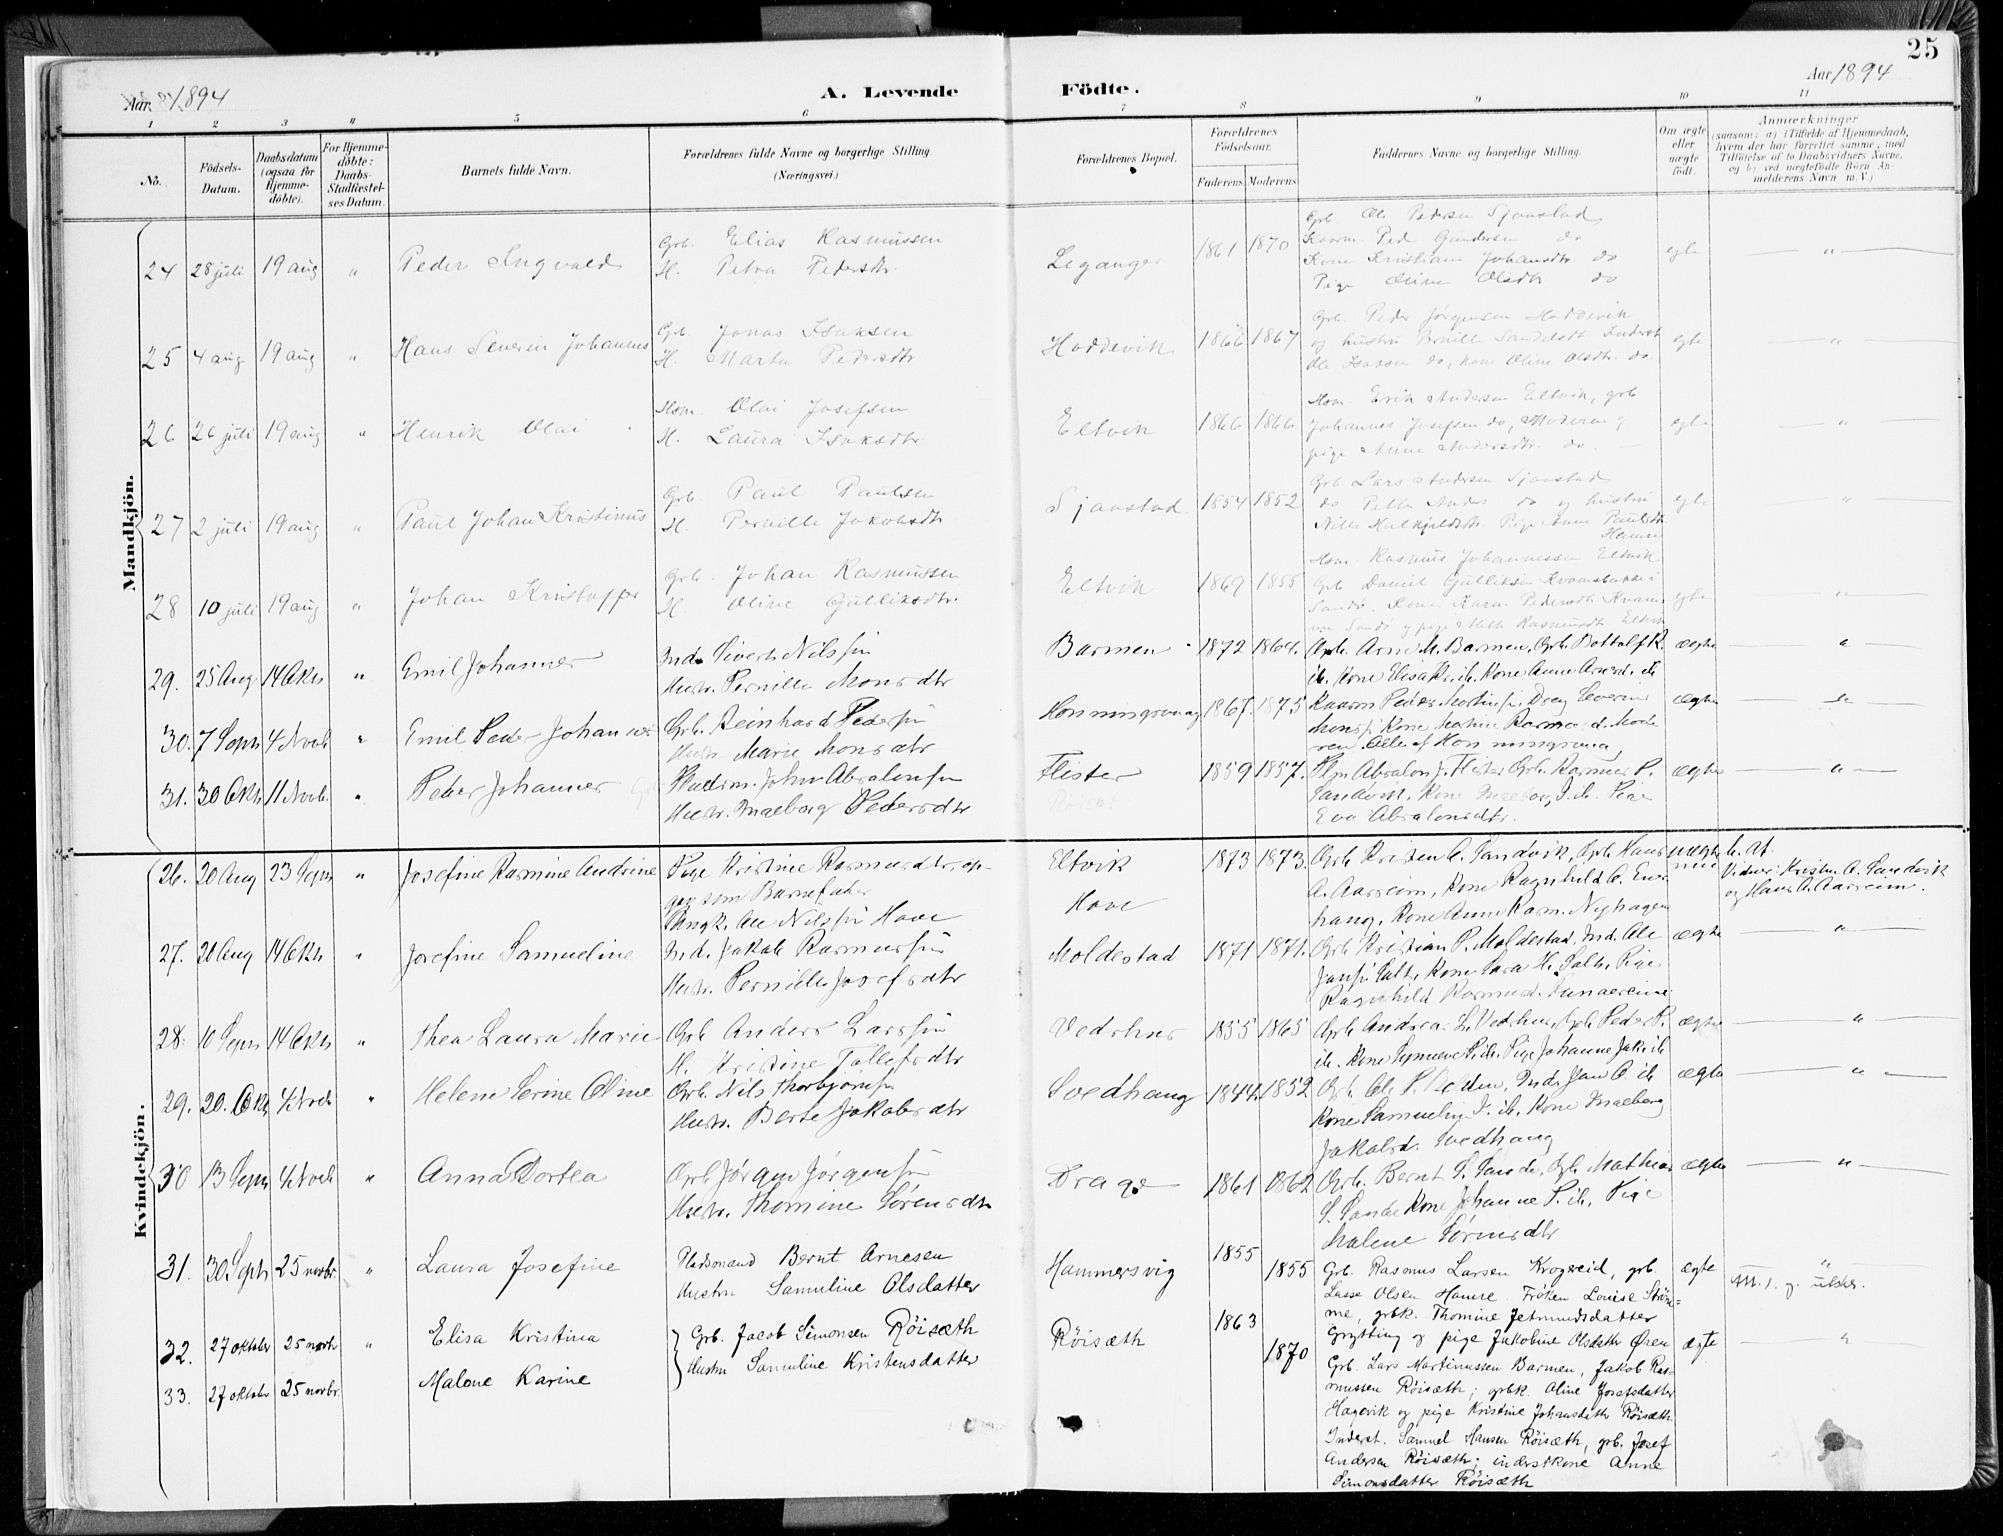 25
Aar 1894
A. Levende
Födte.
Aar 1894
1 2 3 4 5 6 7 8 9 10 11
No.
Födsels-
Datum.
Daabsdatum
(ogsaa for
Hjemme-
döbte).
For Hjemme-
döbte:
Daabs-
Stadfæstel-
ses Datum.
Barnets fulde Navn.
Forældrenes fulde Navne og borgerlige Stilling
(Næringsvei.)
Forældrenes Bopæl.
Forældrenes
Födselsaar.
Faderens Moderens
Faddernes Navne og borgerlige Stilling.
Om ægte
eller
uægte
födt.
Anmærkninger
(saasom: a) i Tilfælde af Hjemmedaab,
hvem der har forrettet samme, med
Tilföielse af to Daabsvidners Navne,
og b) ved uægtefödte Börn An-
melderens Navn m. V.)
Mandkjön.
24 28 juli 19 aug " Peder Ingvald
Grb. Elias Rasmussen
H. Petra Pedersdtr.
Leganger 1861 1870
Grb Ole Pedersen Sjaastad
Kaarm. Ped Gundersen do
Kone Kristiane Johansdtr do
Pige Oline Olsdtr do
egte "
25 4 aug 19 aug " Hans Severin Johannes
Grb Jonas Isaksen
H. Marta Pedersdtr
Hoddevik 1866 1867
Grb. Peder Jørgensen Hoddevik
Ole Isaksen do, kone Oline Olsdtr. do.
egte "
26 26 juli 19 aug " Henrik Olai
Hsm. Olai Josefsen
H. Laura Isaksdtr
Eltvik 1866 1866
Hsm. Erik Andersen Eltvik, grb
Johannes Josefsen do, Moderen og
pige Anne Andersdtr. do.
egte "
27 2 juli 19 aug " Paul Johan Kristinus
Grb. Paul Paulsen
H. Pernille Jakobsdtr
Sjaastad 1854 1852
Grb Lars Andersen Sjaastad
do Petter Anders do og hustru
Pige Anne Paulsdtr
egte "
28 10 juli 19 aug " Johan Kristoffer
Grb. Johan Rasmussen
H. Oline Gulliksdtr.
Eltvik 1869 1855
Hsm. Rasmus Johannessen Eltvik
Grb. Daniel Gulliksen
Kone Karen Pedersdtr
egte "
29. 25 Aug 14 Okt " Emil Johannes
Ind. Sivert Nilssøn
Hustr. Pernille Monsdtr
Barmen 1872 1864.
Grb. Arne M. Barmen, Grb. Bottolf R.
ib. Kone Elisa ib. Kone Anne Arnesd. ib
ægte "
30. 7 Septr 4 Novb. " Emil Peder Johannes
Grb. Reinhard Pedersøn
Hustr. Marie Monsdtr
Honningsvaag 1867. 1875
Kaarm Peder Mortinsøn Drag Severin
Monsøn Kone
ren. Alle af Honningsvaag
ægte "
31. 30 Okt. 11 Novb. " Peder Johannes
Pladsm. John Absalonsøn
Hustr. Ingeborg Pedersdtr
Flister 1859 1857.
Absalon J. Flister Grb. Rasmus P.
Sandvik. Kone Ingeborg J. ib. Pige
Eva Absalonsdtr.
ægte "
Kvindekjön.
26. 20 Aug 23 Septr " Josefine Rasmine Andrine
Pige Kristine Rasmusdtr, op-
gav som Barnefader
Ungk. Ole Nilssøn Hove
Eltvik
Hove
1873 1873.
Grb. Kristen A. Sandvik, Grb. Hans
A. Aarreim, Kone Ragnhild O.
Kone Anne Rasm. Nyhagen
uægte
Vidner: Kristen A. Sandvik
og Hans A. Aarreim.
27. 20 Aug 14 Okt " Josefine Samueline
Ind. Jakob Rasmussøn
Hustr. Pernille Josefsdtr
Moldestad 1871 1871.
Grb Kristian P. Moldestad, Ind. Ole
Jansøn Salt, Kone Sara H. Salt, Pige
Ragnhild Rasmusd.
ægte "
28. 10 Septr 14 Okt " Thea Laura Marie
Grb Anders Larssøn
H. Kristine Tollefsdtr
Vedhus 1855 1865
Grb Andreas L. Vedhus, Grb Peder P.
ib. Kone Synneve P. ib. Pige Johanne Jak. ib
ægte "
29. 20. Okt 4 Novb " Helene Serine Oline
Grb. Nils Thorbjørnsøn
Hustr. Berte Jakobsdtr
Svedhaug 1844. 1852
Grb. Ole P. Ind. Jan O. ib
Kone Samueline J. ib. Kone Ingeborg
Jakobsd. Svedhaug
ægte "
30 13 Septr 4 Novb " Anna Dortea
Grb Jørgen Jørgensøn
Hustr. Thomine Sørensdtr
Drage 1861 1862
Grb. Bernt S. Sande, Grb Mathias
S. Sande Kone Johanne P. ib. Pige
Malene Sørensdtr
ægte "
31. 30 Septr 25 novbr. " Laura Josefine
Pladsmand Bernt Arnesen
Hustru Samuline Olsdatter
Hammersvig 1855 1855
Grb. Rasmus Larsen Krogereid, grb.
Lasse Olsen Hamre. Frøken Louise Strøm-
me, grbk. Thomine Jetmundsdatter
Grytting og pige Jakobine Olsdatter Øren
ægte "
32. 27 oktober 25 novbr " Elisa Kristina
33. 27 oktober 25 novbr. Malene Karine
Grb. Jacob Simonsen Røisæth
Hustru Samuline Kristensdatter
Røisæth 1863 1870
Grb. Lars Martinussen Barmen, Jakob Ras-
mussen Røisæth; grbk. Oline Josefsdatter
Hagevik og pige Kristine Johansdatter Røisæth
Inderst. Samuel Hansen Røisæth, grb. Josef
Andersen Røisæth; inderstkone Anne
Simonsdatter Røisæth
ægte "